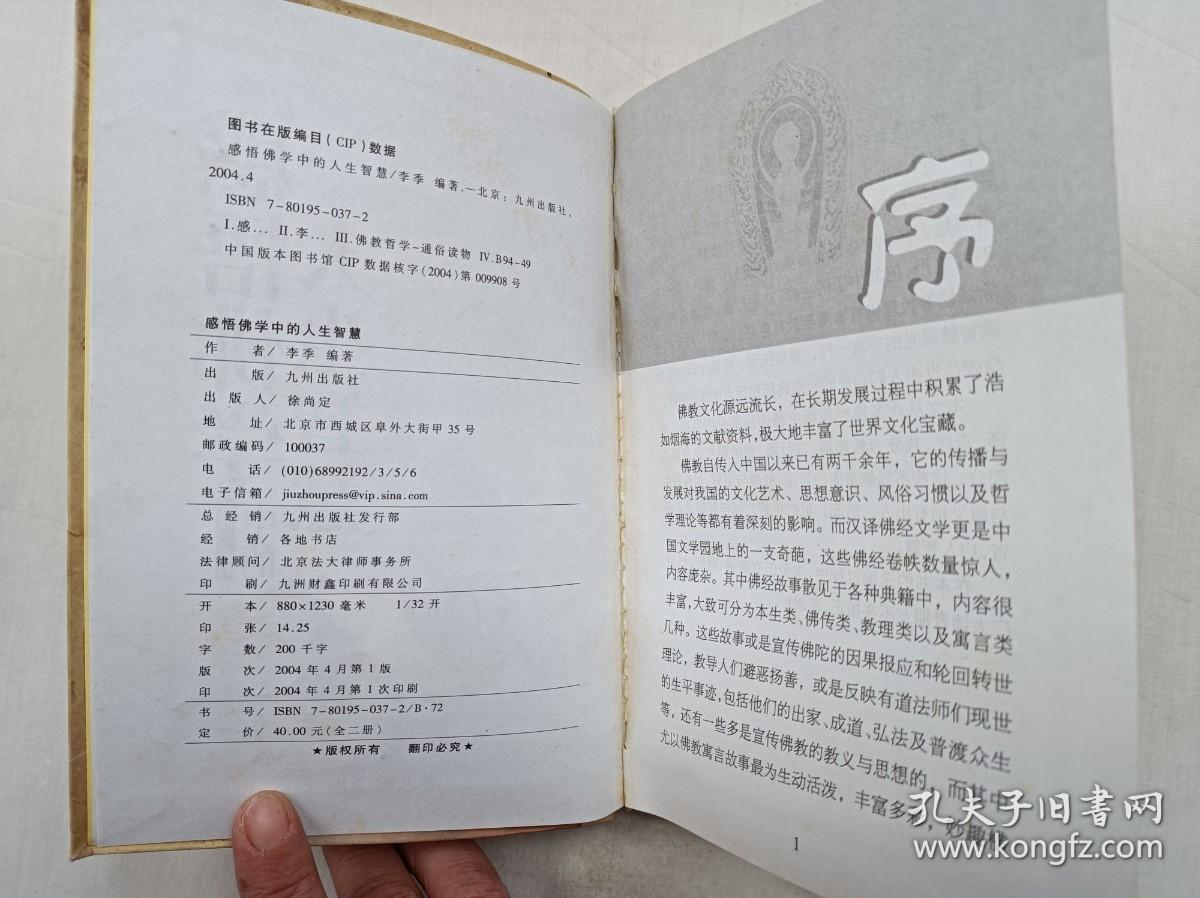 图书在版编目(CIP)数据
感悟佛学中的人生智慧/李季 编著.—北京：九州出版社，
2004.4
ISBN 7-80195-037-2
Ⅰ.感… Ⅱ.李… Ⅲ.佛教哲学-通俗读物 Ⅳ.B94-49
中国版本图书馆CIP数据核字(2004)第009908号
感悟佛学中的人生智慧
作 者/ 李季 编著
出 版/ 九州出版社
出 版 人/ 徐尚定
地 址/ 北京市西城区阜外大街甲35号
邮政编码/ 100037
电 话/ (010)68992192/3/5/6
电子信箱/ jiuzhoupress@vip.sina.com
总 经 销/ 九州出版社发行部
经 销/ 各地书店
法律顾问/ 北京法大律师事务所
印 刷/ 九洲财鑫印刷有限公司
开 本/ 880×1230 毫米 1/32开
印 张/ 14.25
字 数/ 200千字
版 次/ 2004年4月第1版
印 次/ 2004年4月第1次印刷
书 号/ ISBN 7-80195-037-2/B·72
定 价/ 40.00元(全二册)
★版权所有 翻印必究★
序
佛教文化源远流长，在长期发展过程中积累了浩
如烟海的文献资料，极大地丰富了世界文化宝藏。
佛教自传入中国以来已有两千余年，它的传播与
发展对我国的文化艺术、思想意识、风俗习惯以及哲
学理论等都有着深刻的影响。而汉译佛经文学更是中
国文学园地上的一支奇葩，这些佛经卷帙数量惊人，
内容庞杂。其中佛经故事散见于各种典籍中，内容很
丰富，大致可分为本生类、佛传类、教理类以及寓言类
几种。这些故事或是宣传佛陀的因果报应和轮回转世
理论，教导人们避恶扬善，或是反映有道法师们现世
的生平事迹，包括他们的出家、成道、弘法及普渡众生
等，还有一些多是宣传佛教的教义与思想的，而其中
尤以佛教寓言故事最为生动活泼，丰富多，妙趣
1
孔夫子旧书网
www.kongfz.com